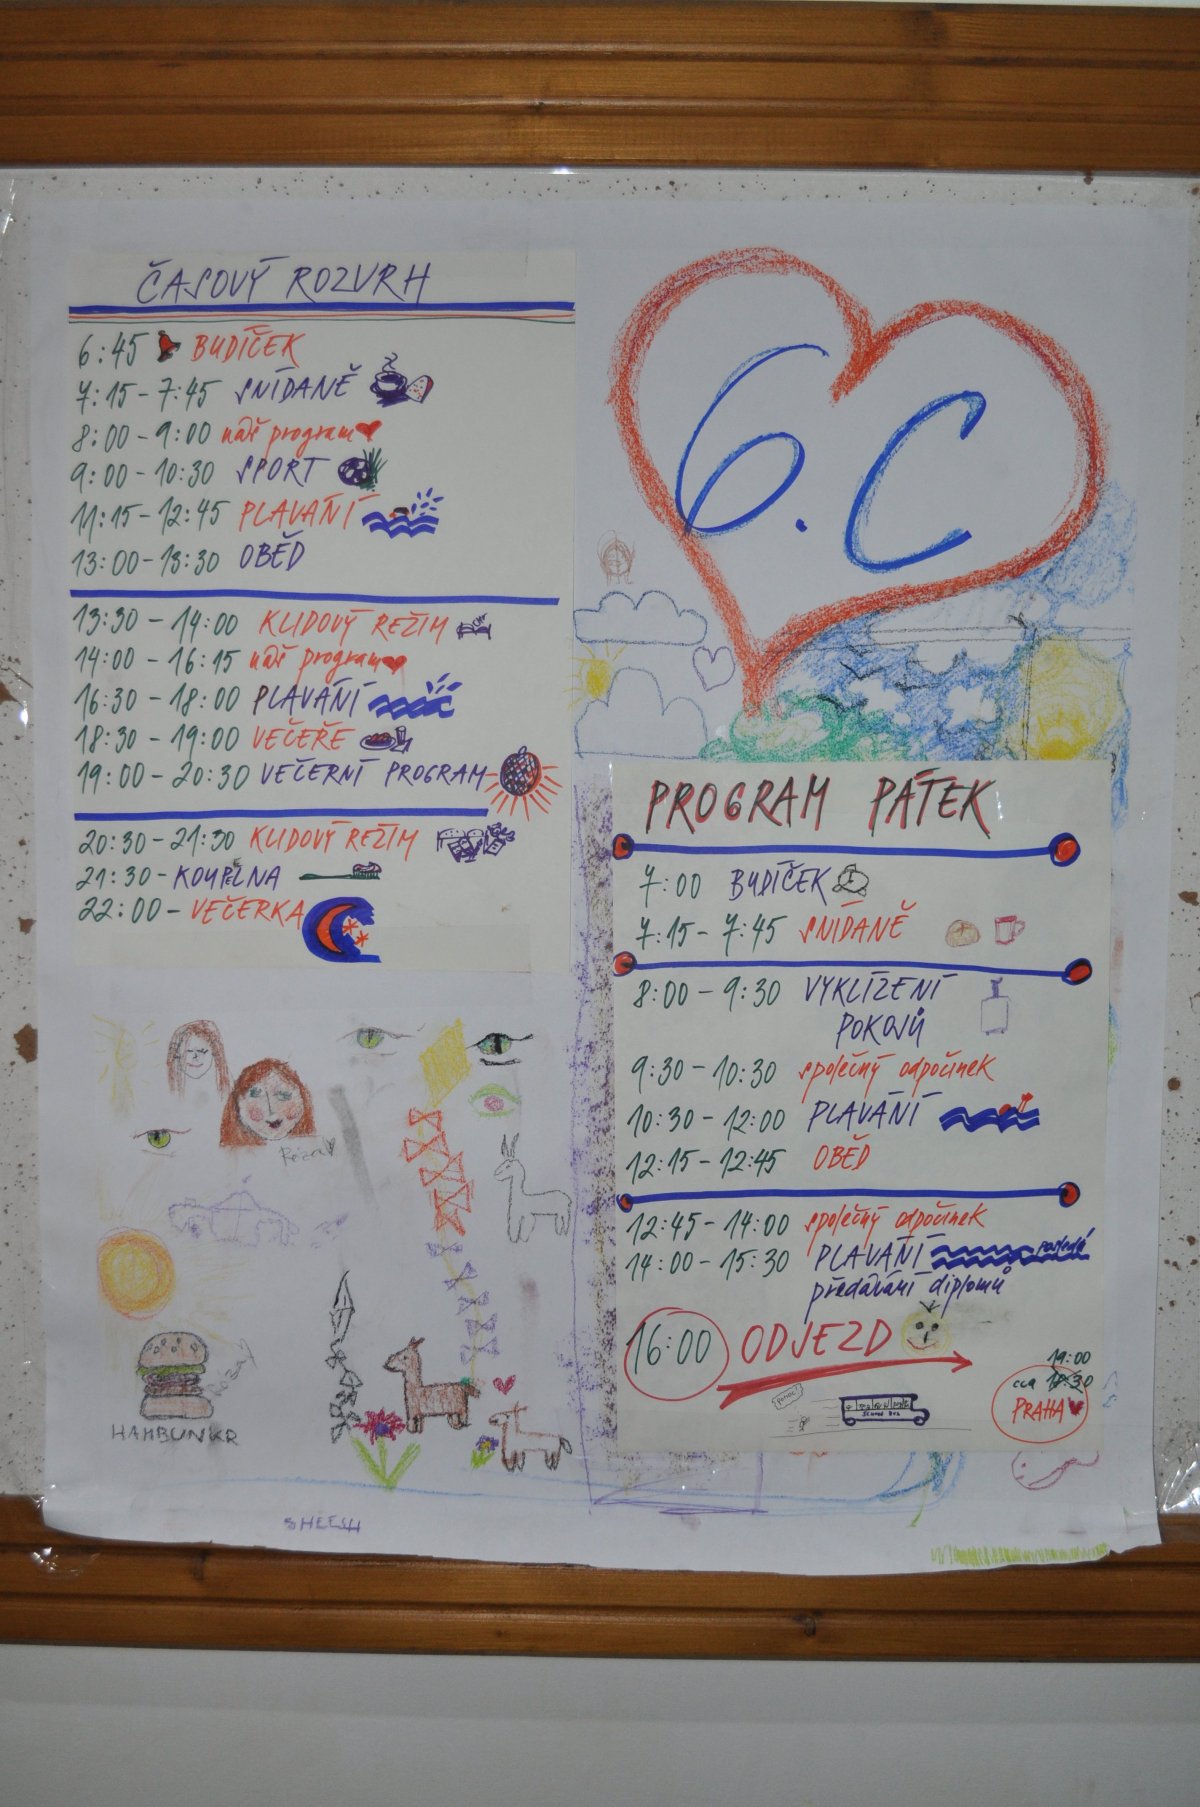 ČASOVÝ ROZVRH
6:45 BUDÍČEK
7:15 - 7:45 SNÍDANĚ
8:00 - 9:00 náš program
9:00 - 10:30 SPORT
11:15 - 12:45 PLAVÁNÍ
13:00 - 13:30 OBĚD
13:30 - 14:00 KLIDOVÝ REŽIM
14:00 - 16:15 náš program
16:30 - 18:00 PLAVÁNÍ
18:30 - 19:00 VEČEŘE
19:00 - 20:30 VEČERNÍ PROGRAM
20:30 - 21:30 KLIDOVÝ REŽIM
21:30 - KOUPELNA
22:00 - VEČERKA
6.C
PROGRAM PÁTEK
7:00 BUDÍČEK
7:15 - 7:45 SNÍDANĚ
8:00 - 9:30 VYKLÍZENÍ
POKOJŮ
9:30 - 10:30 společný odpočinek
10:30 - 12:00 PLAVÁNÍ
12:15 - 12:45 OBĚD
12:45 - 14:00 společný odpočinek
14:00 - 15:30 PLAVÁNÍ
předávání diplomů
16:00 ODJEZD
19:00
cca 18:30
PRAHA
HAMBUNKR
SHEESH